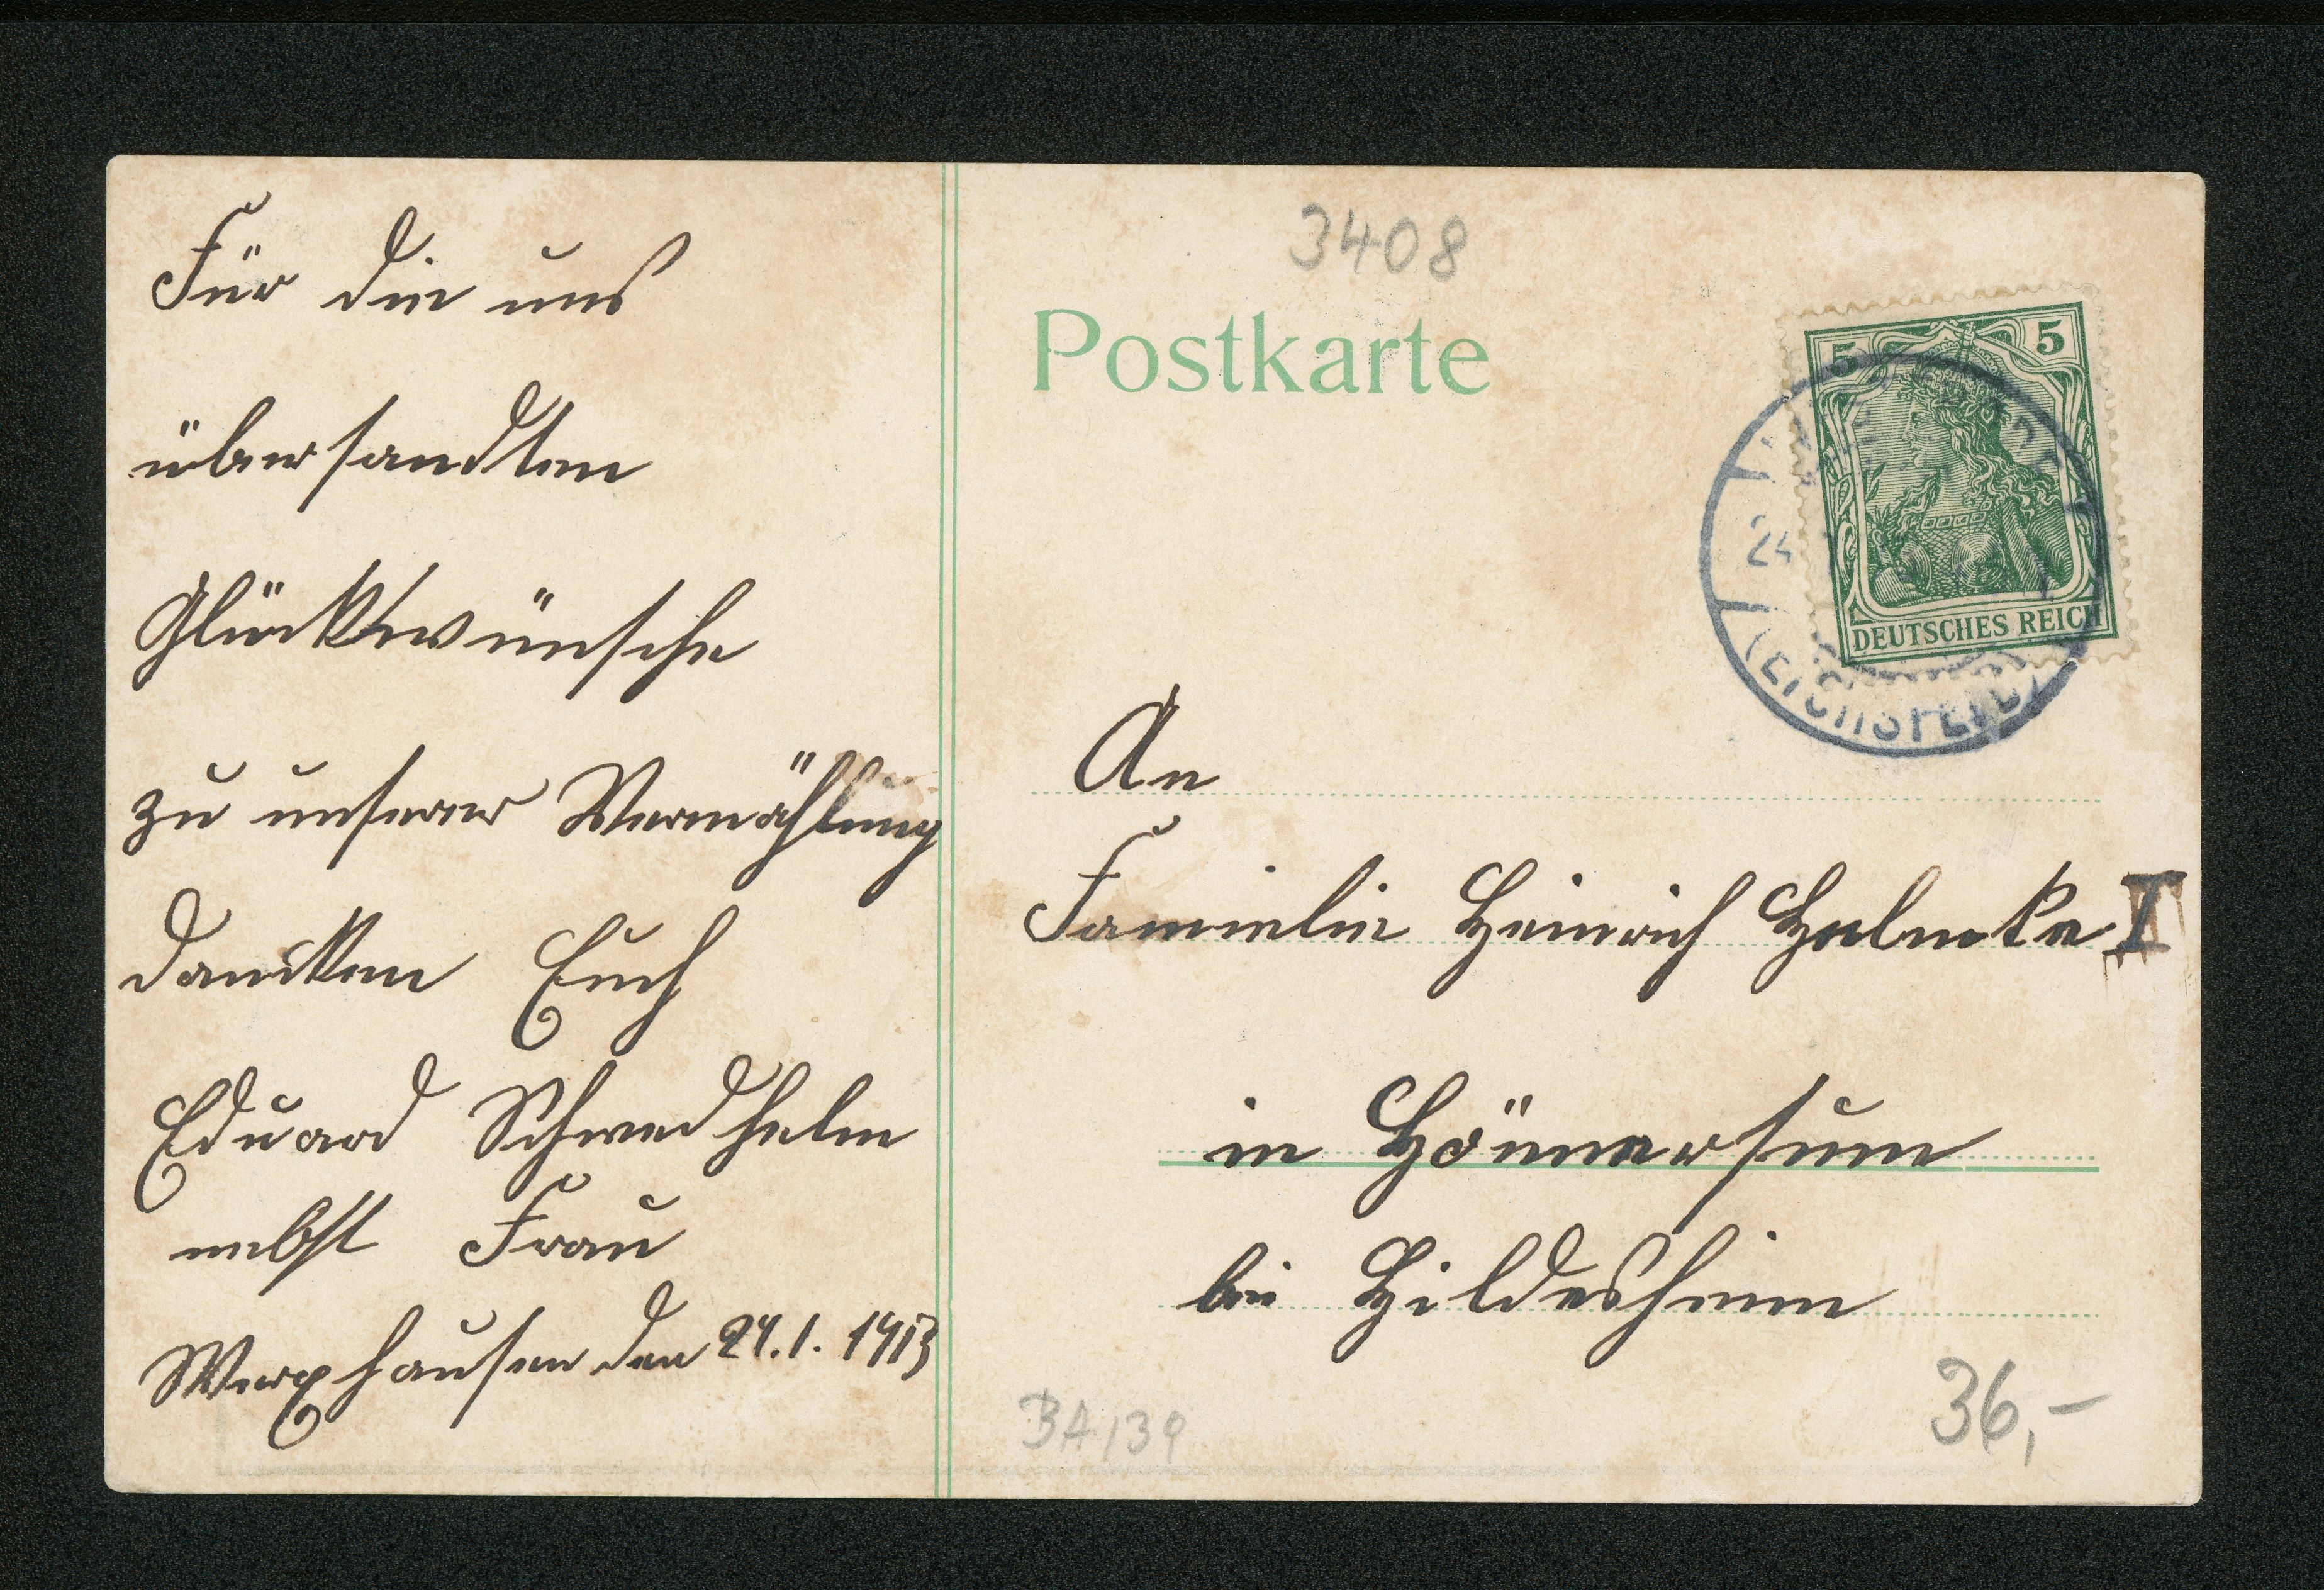 Für die uns
übersandten
Glückwünsche
zu unserer Vermählung
danken Euch
Eduard Schwedhelm
nebst Frau
Werxhausen den 24.1.1913
3408
Postkarte
5 5
DEUTSCHES REICH
24
(EICHSFELD)
An
Familie Heinrich I
in Hönnersum
bei Hildesheim
BA139
36,-